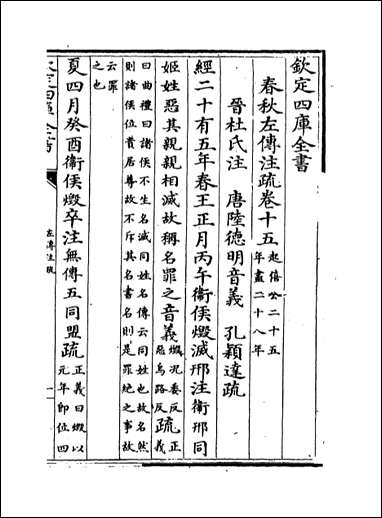 欽定四庫全書
春秋左傳注疏卷十五起僖公二十五年盡二十八年
晉杜氏注　唐陸德明音義　孔穎達疏
經二十有五年春王正月丙午衛侯燬滅邢注衛邢同
姬姓惡其親親相滅故稱名罪之音義燬况委反惡烏路反疏正義
曰曲禮曰諸侯不生名滅同姓名傳云同姓也故名然
則諸侯位貴居尊故不斥其名書名則是罪絶之事故
云罪之也
夏四月癸酉衛侯燬卒注無傳五同盟疏正義曰燬以元年即位四
欽定四庫全書
左傳注疏
一